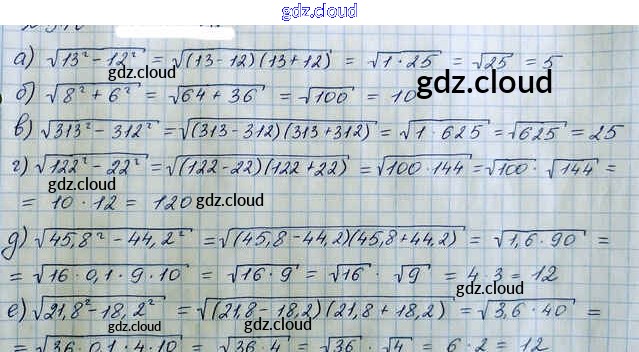 gdz.cloud
а) √(13² − 12²) = √((13−12)(13+12)) = √(1·25) = √25 = 5
gdz.cloud
б) √(8² + 6²) = √(64 + 36) = √100 = 10
gdz.cloud
в) √(313² − 312²) = √((313−312)(313+312)) = √(1·625) = √625 = 25
г) √(122² − 22²) = √((122−22)(122+22)) = √(100·144) = √100 · √144 =
gdz.cloud
= 10 · 12 = 120
gdz.cloud
д) √(45,8² − 44,2²) = √((45,8−44,2)(45,8+44,2)) = √(1,6·90) =
gdz.cloud
= √(16·0,1·9·10) = √(16·9) = √16 · √9 = 4·3 = 12
е) √(21,8² − 18,2²) = √((21,8−18,2)(21,8+18,2)) = √(3,6·40) =
gdz.cloud
gdz.cloud
= √(36·0,1·4·10) = √(36·4) = √36 · √4 = 6·2 = 12